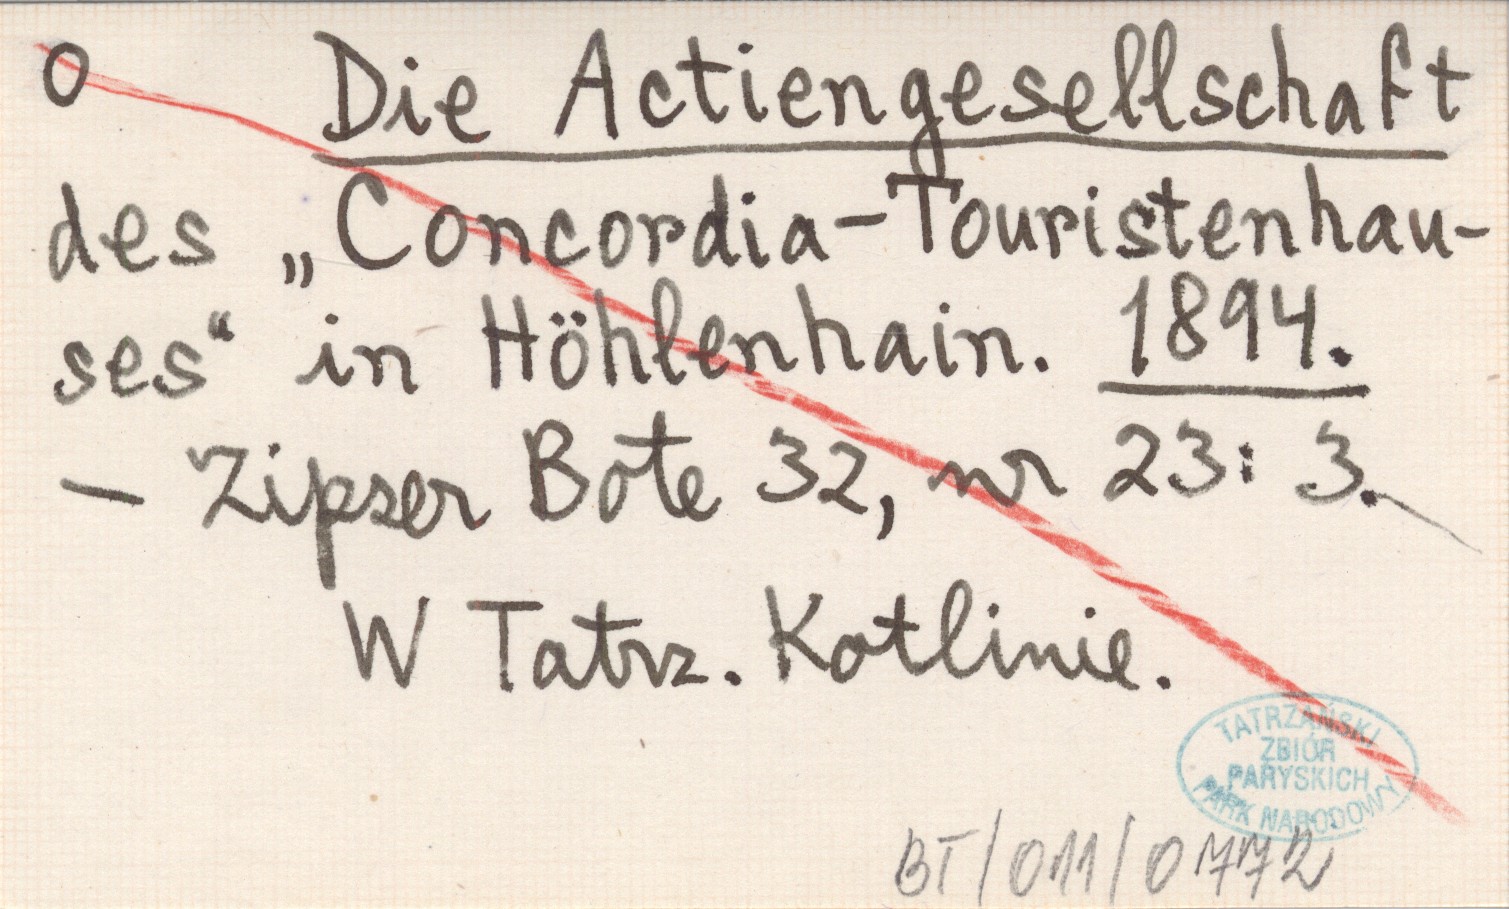 O Die Actiengesellschaft
des „Concordia-Touristenhau-
ses“ in Höhlenhain. 1894.
— Zipser Bote 32, nr 23: 3.
W Tatrz. Kotlinie.
TATRZAŃSKI
ZBIÓR
PARYSKICH
PARK NARODOWY
BT/011/0772